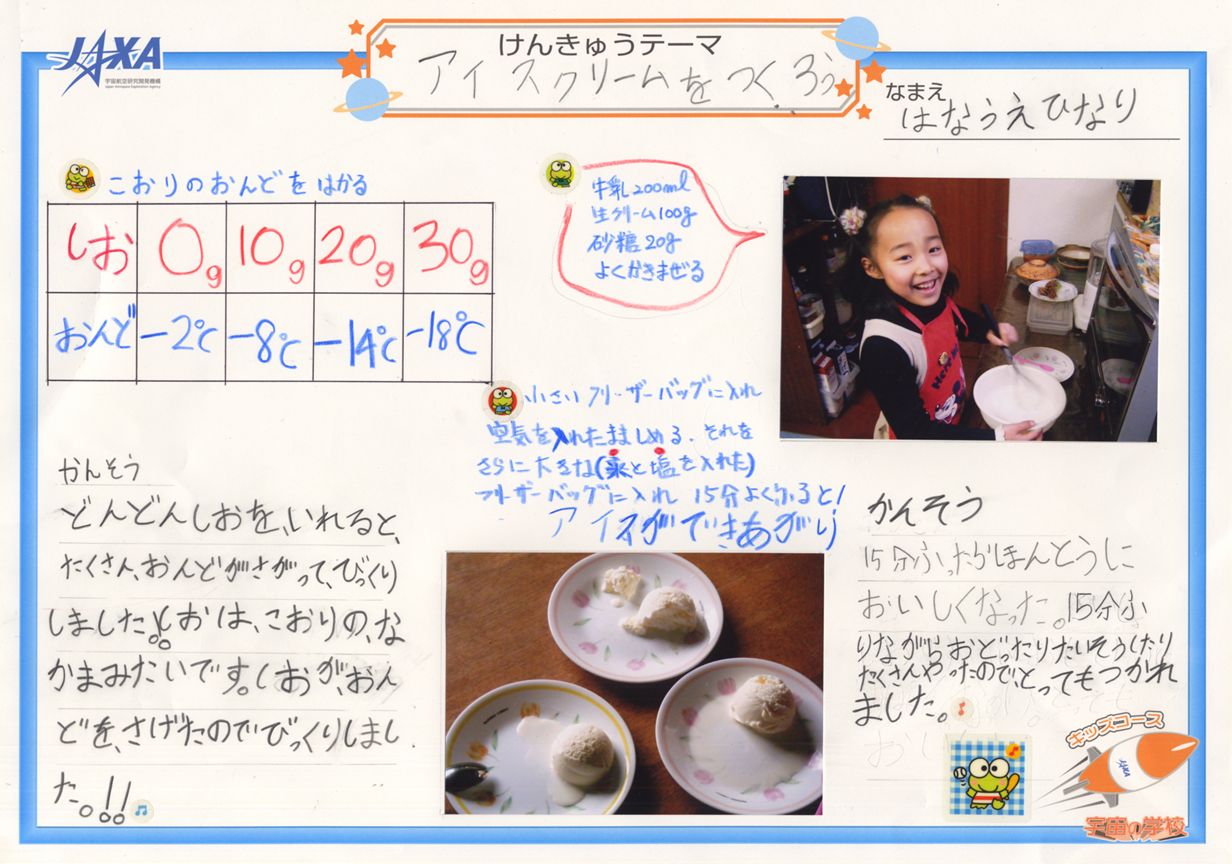 JAXA
宇宙航空研究開発機構
Japan Aerospace Exploration Agency
けんきゅうテーマ
アイスクリームをつくろう
なまえ
はなうえひなり
こおりのおんどをはかる
しお 0g 10g 20g 30g
おんど -2℃ -8℃ -14℃ -18℃
牛乳200ml
生クリーム100g
砂糖20g
よくかきまぜる
小さいフリーザーバッグに入れ
空気を入れたまましめる。それを
さらに大きな(氷と塩を入れた)
フリーザーバッグに入れ 15分よくふると!
アイスができあがり
かんそう
どんどんしおを、いれると、
たくさん、おんどがさがって、びっくり
しました!!しおは、こおりの、な
かまみたいです。しおが、おん
どを、さげたのでびっくりしまし
た。!!
かんそう
15分ふったらほんとうに
おいしくなった。15分ふ
りながらおどったりたいそうしたり
たくさんやったので、とってもつかれ
ました。
キッズコース
JAXA
宇宙の学校